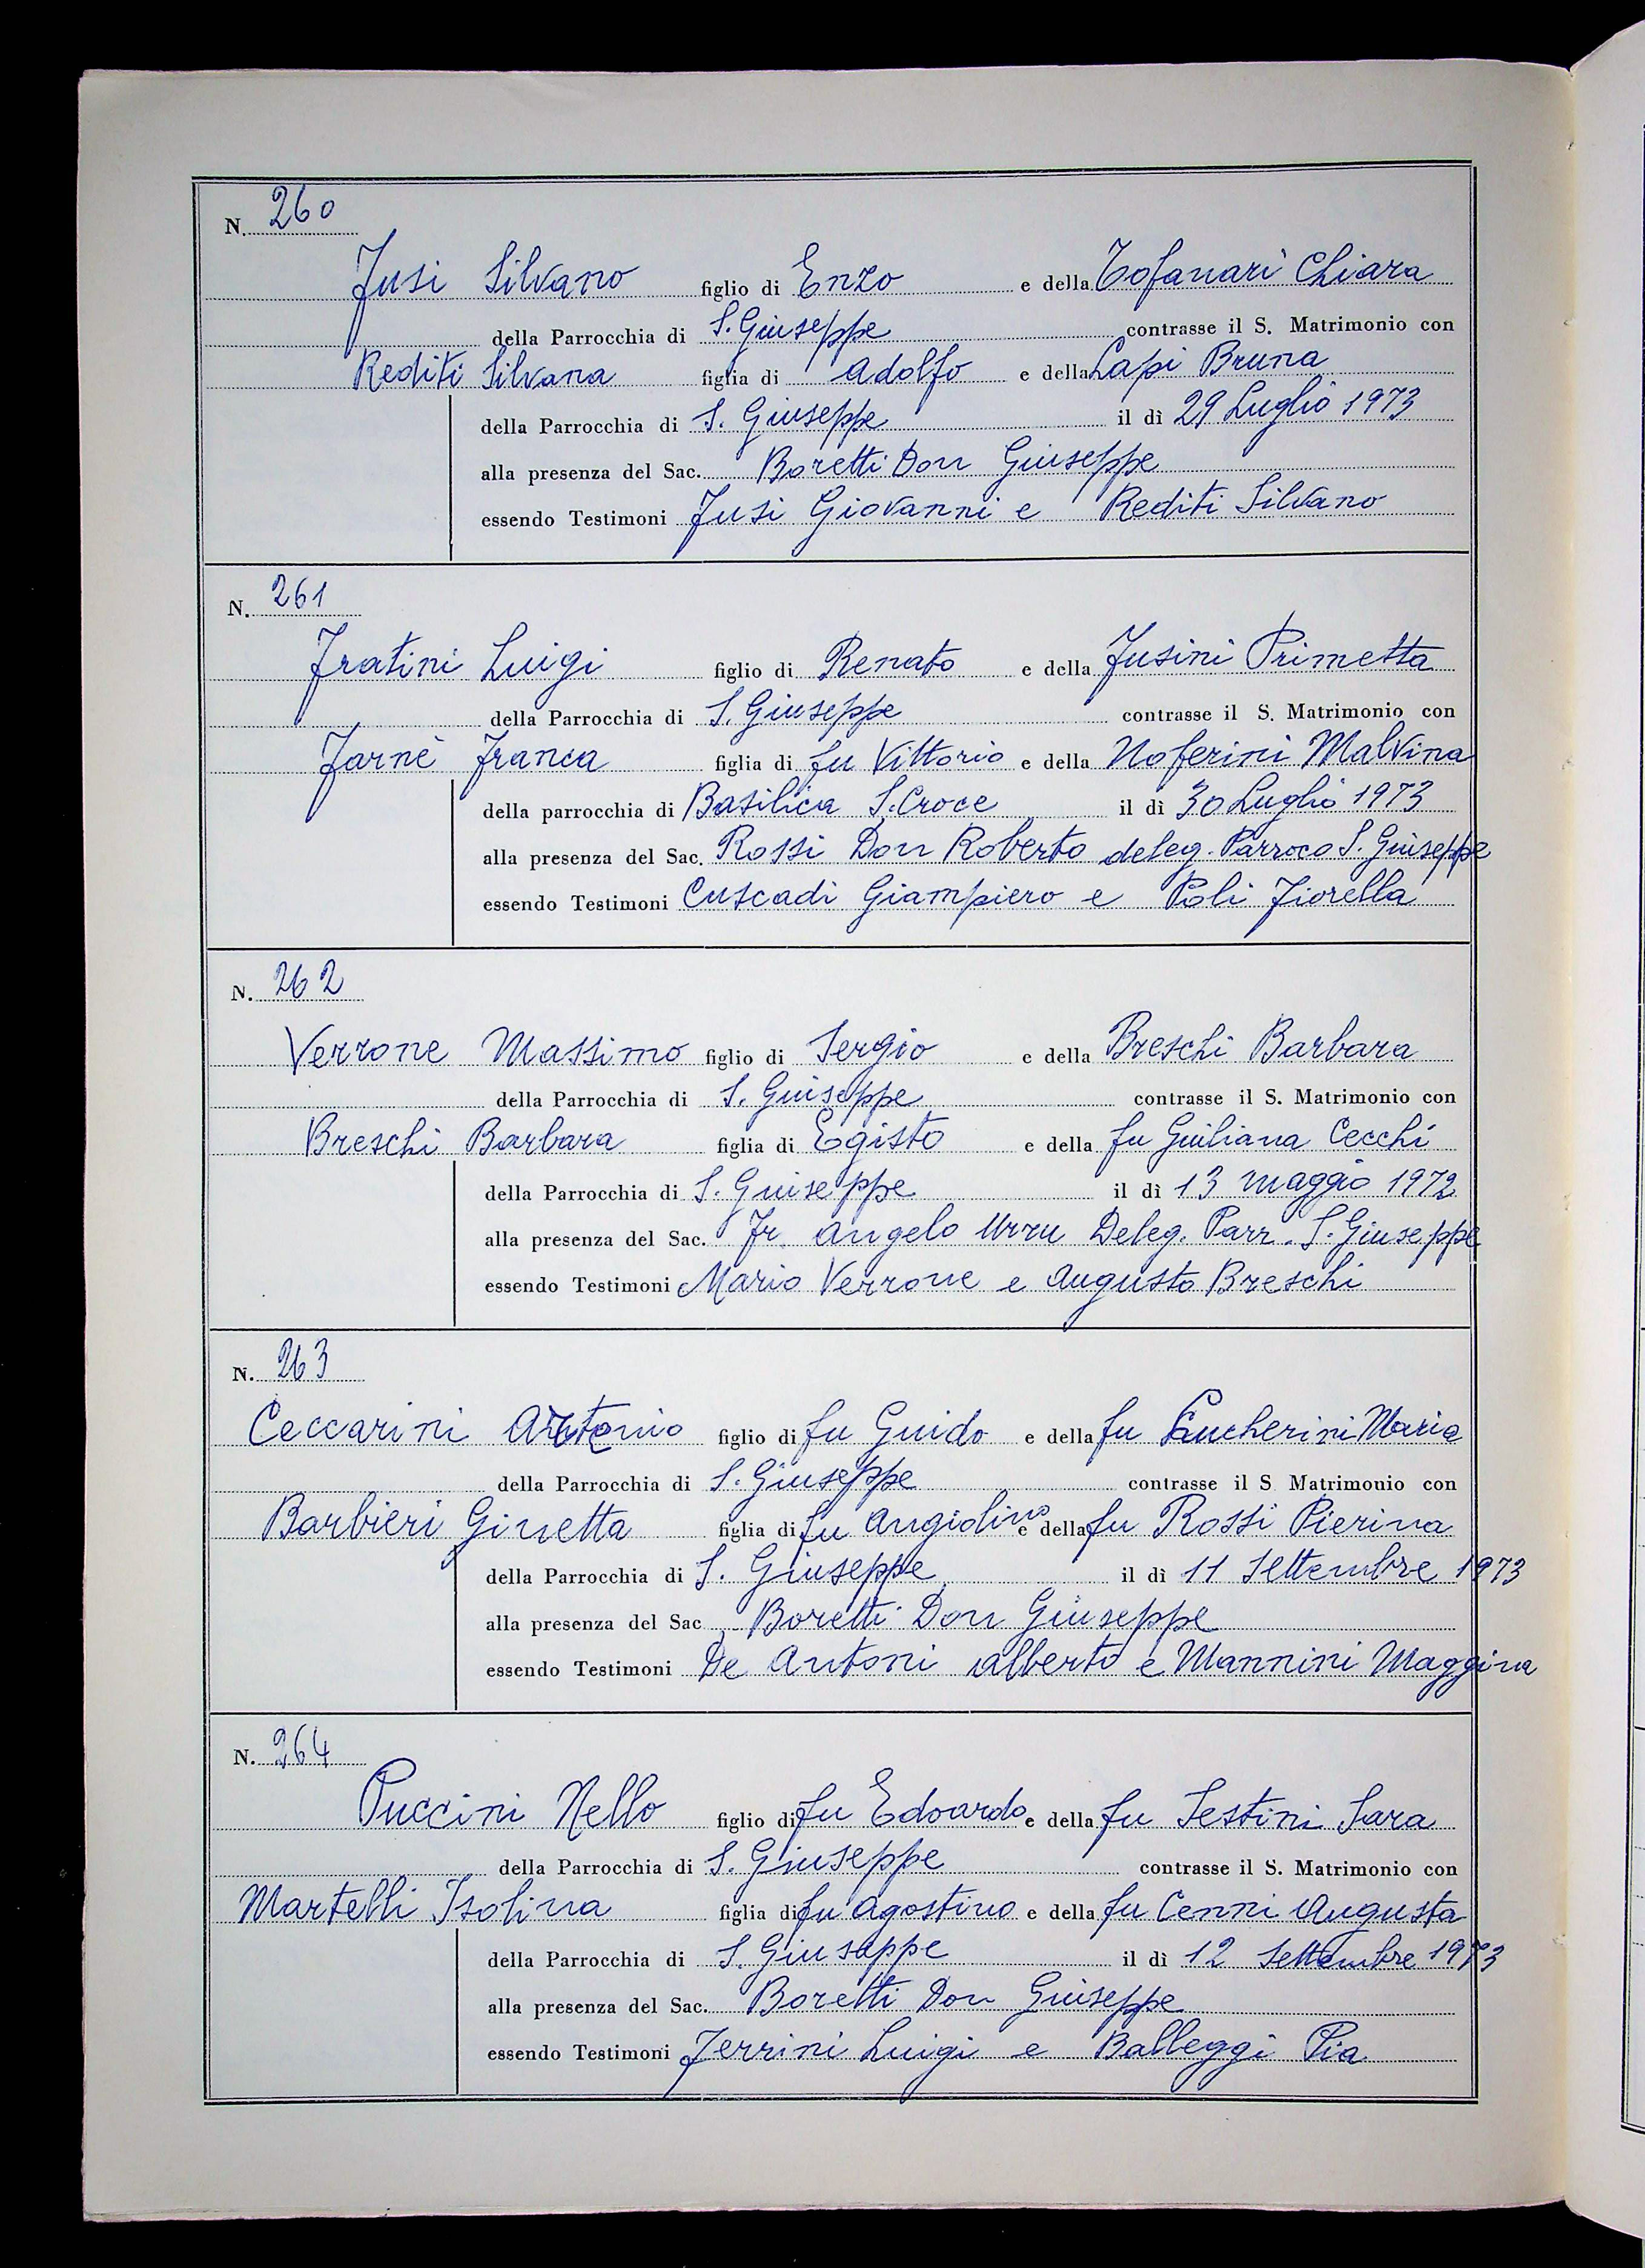 N. 260
Fusi Silvano figlio di Enzo e della Tofanari Chiara
della Parrocchia di S. Giuseppe contrasse il S. Matrimonio con
Rediti Silvana figlia di Adolfo e della Lapi Bruna
della Parrocchia di S. Giuseppe il dì 29 Luglio 1973
alla presenza del Sac. Boretti Don Giuseppe
essendo Testimoni Fusi Giovanni e Rediti Silvano
N. 261
Fratini Luigi figlio di Renato e della Fusini Primetta
della Parrocchia di S. Giuseppe contrasse il S. Matrimonio con
Farnè Franca figlia di fu Vittorio e della Noferini Malvina
della parrocchia di Basilica S. Croce il dì 30 Luglio 1973
alla presenza del Sac. Rossi Don Roberto deleg. Parroco S. Giuseppe
essendo Testimoni Cuscadi Giampiero e Poli Fiorella
N. 262
Verrone Massimo figlio di Sergio e della Breschi Barbara
della Parrocchia di S. Giuseppe contrasse il S. Matrimonio con
Breschi Barbara figlia di Egisto e della fu Giuliana Cecchi
della Parrocchia di S. Giuseppe il dì 13 maggio 1972
alla presenza del Sac. Fr. Angelo Urru Deleg. Parr. S. Giuseppe
essendo Testimoni Mario Verrone e Augusto Breschi
N. 263
Ceccarini figlio di fu Guido e della fu Maria
della Parrocchia di S. Giuseppe contrasse il S Matrimonio con
Barbieri Ginetta figlia di fu Angiolino e della fu Rossi Pierina
della Parrocchia di S. Giuseppe il dì 11 Settembre 1973
alla presenza del Sac Boretti Don Giuseppe
essendo Testimoni De Antoni Alberto e Mannini Maggina
N. 264
Puccini Nello figlio di fu Edoardo e della fu Sestini Sara
della Parrocchia di S. Giuseppe contrasse il S. Matrimonio con
Martelli Isolina figlia di fu Agostino e della fu Cenni Augusta
della Parrocchia di S. Giuseppe il dì 12 Settembre 1973
alla presenza del Sac. Boretti Don Giuseppe
essendo Testimoni Ferrini Luigi e Balleggi Pia